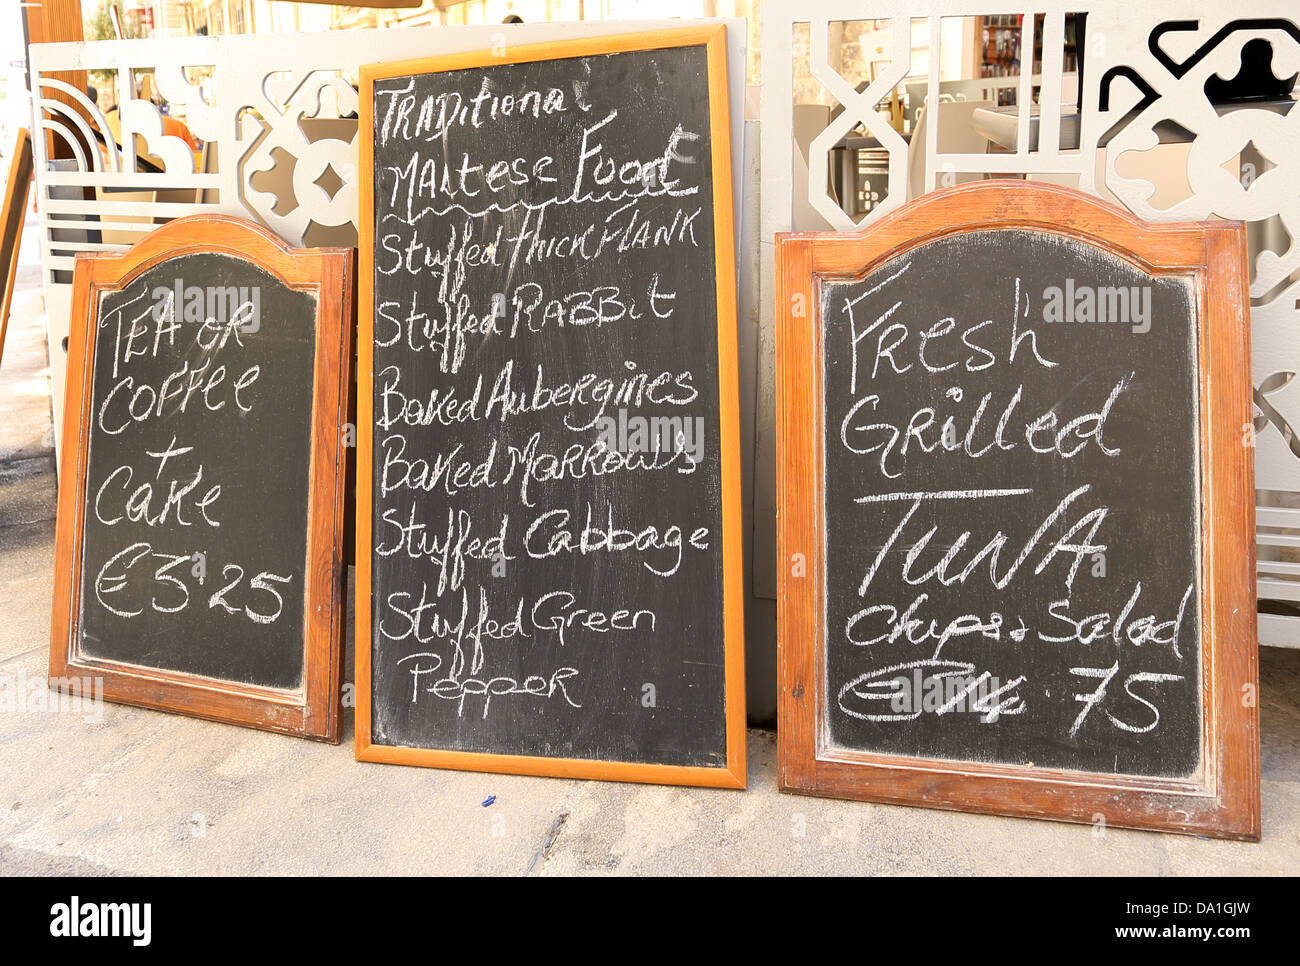 TEA OR
COFFEE
+
CAKE
€3.25
TRADITIONAL
MALTESE FOOD
Stuffed THICK FLANK
Stuffed RABBIT
Baked Aubergines
Baked MARROWS
Stuffed Cabbage
Stuffed Green
PEPPER
FResh
GRilled
TUNA
chips & Salad
€14.75
alamy
alamy
Image ID: DA1GJW
www.alamy.com